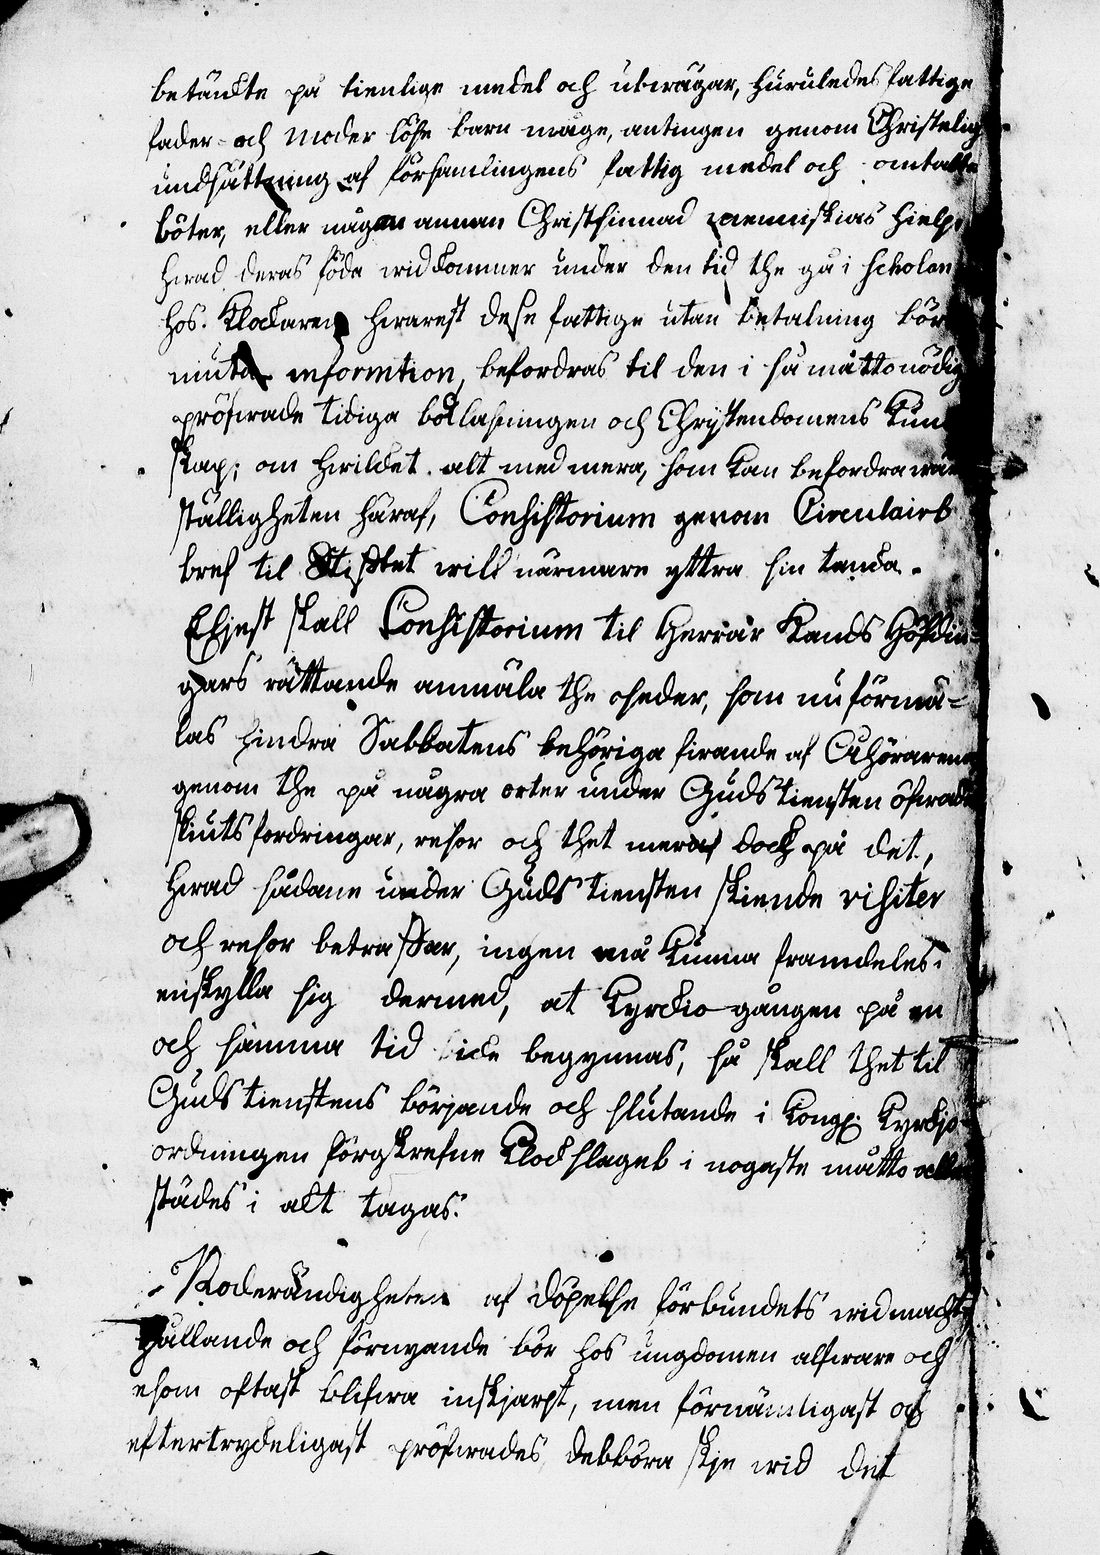 betänckte på tienlige medel och utwägar, huruledes fattige
fader- och Moder löse barn måge, antingen genom Christelig
undsättning af församlingens fattig medel och omtalte
böter, eller någon annan Christsinnad menniskias hielp,
hwad deras föda widkommer under den tid the gå i scholan
hos Klockaren, hwarest dese fattige utan betalning bör
niuta information, befordras til den i så måtto nödig
pröfwade tidiga bok lasningen och Chrystendomens Kun
skap; om hwilcket alt med mera, som Kan befordra wärk
ställigheten häraf, Consistorium genom Circulairt
bref til Stichtet will närmare yttra sin tancka.
Eljest skall Consistorium til Herrar Lands Höfdin=
gars rättande anmäla the oseder, som nu förmä=
las hindra Sabbatens behöriga firande af Åhörarena
genom the på några orter under Gudstiensten öfwade
skiutsfordringar, resor och thet mera; dock på det,
hwad sådane under Gudstiensten skiende visiter
och resor betraffar, ingen må Kunna framdeles
enskylla sig dermed, at Kyrckio gången på en
och samma tid icke begynnas, så skall thet til
Gudstienstens börjande och slutande i Kongl. Kyrckjo-
ordningen förgskrefne Klockslaget i nogaste måtto alle
städes i akt tagas.
Nödwändigheten af döpelse förbundets widmacht
hållande och förnyande bör hos ungdomen alfware och
esom oftast blifwa inskjarpt, men förnämligast och
eftertryckeligast pröfwades det böra skje wid det